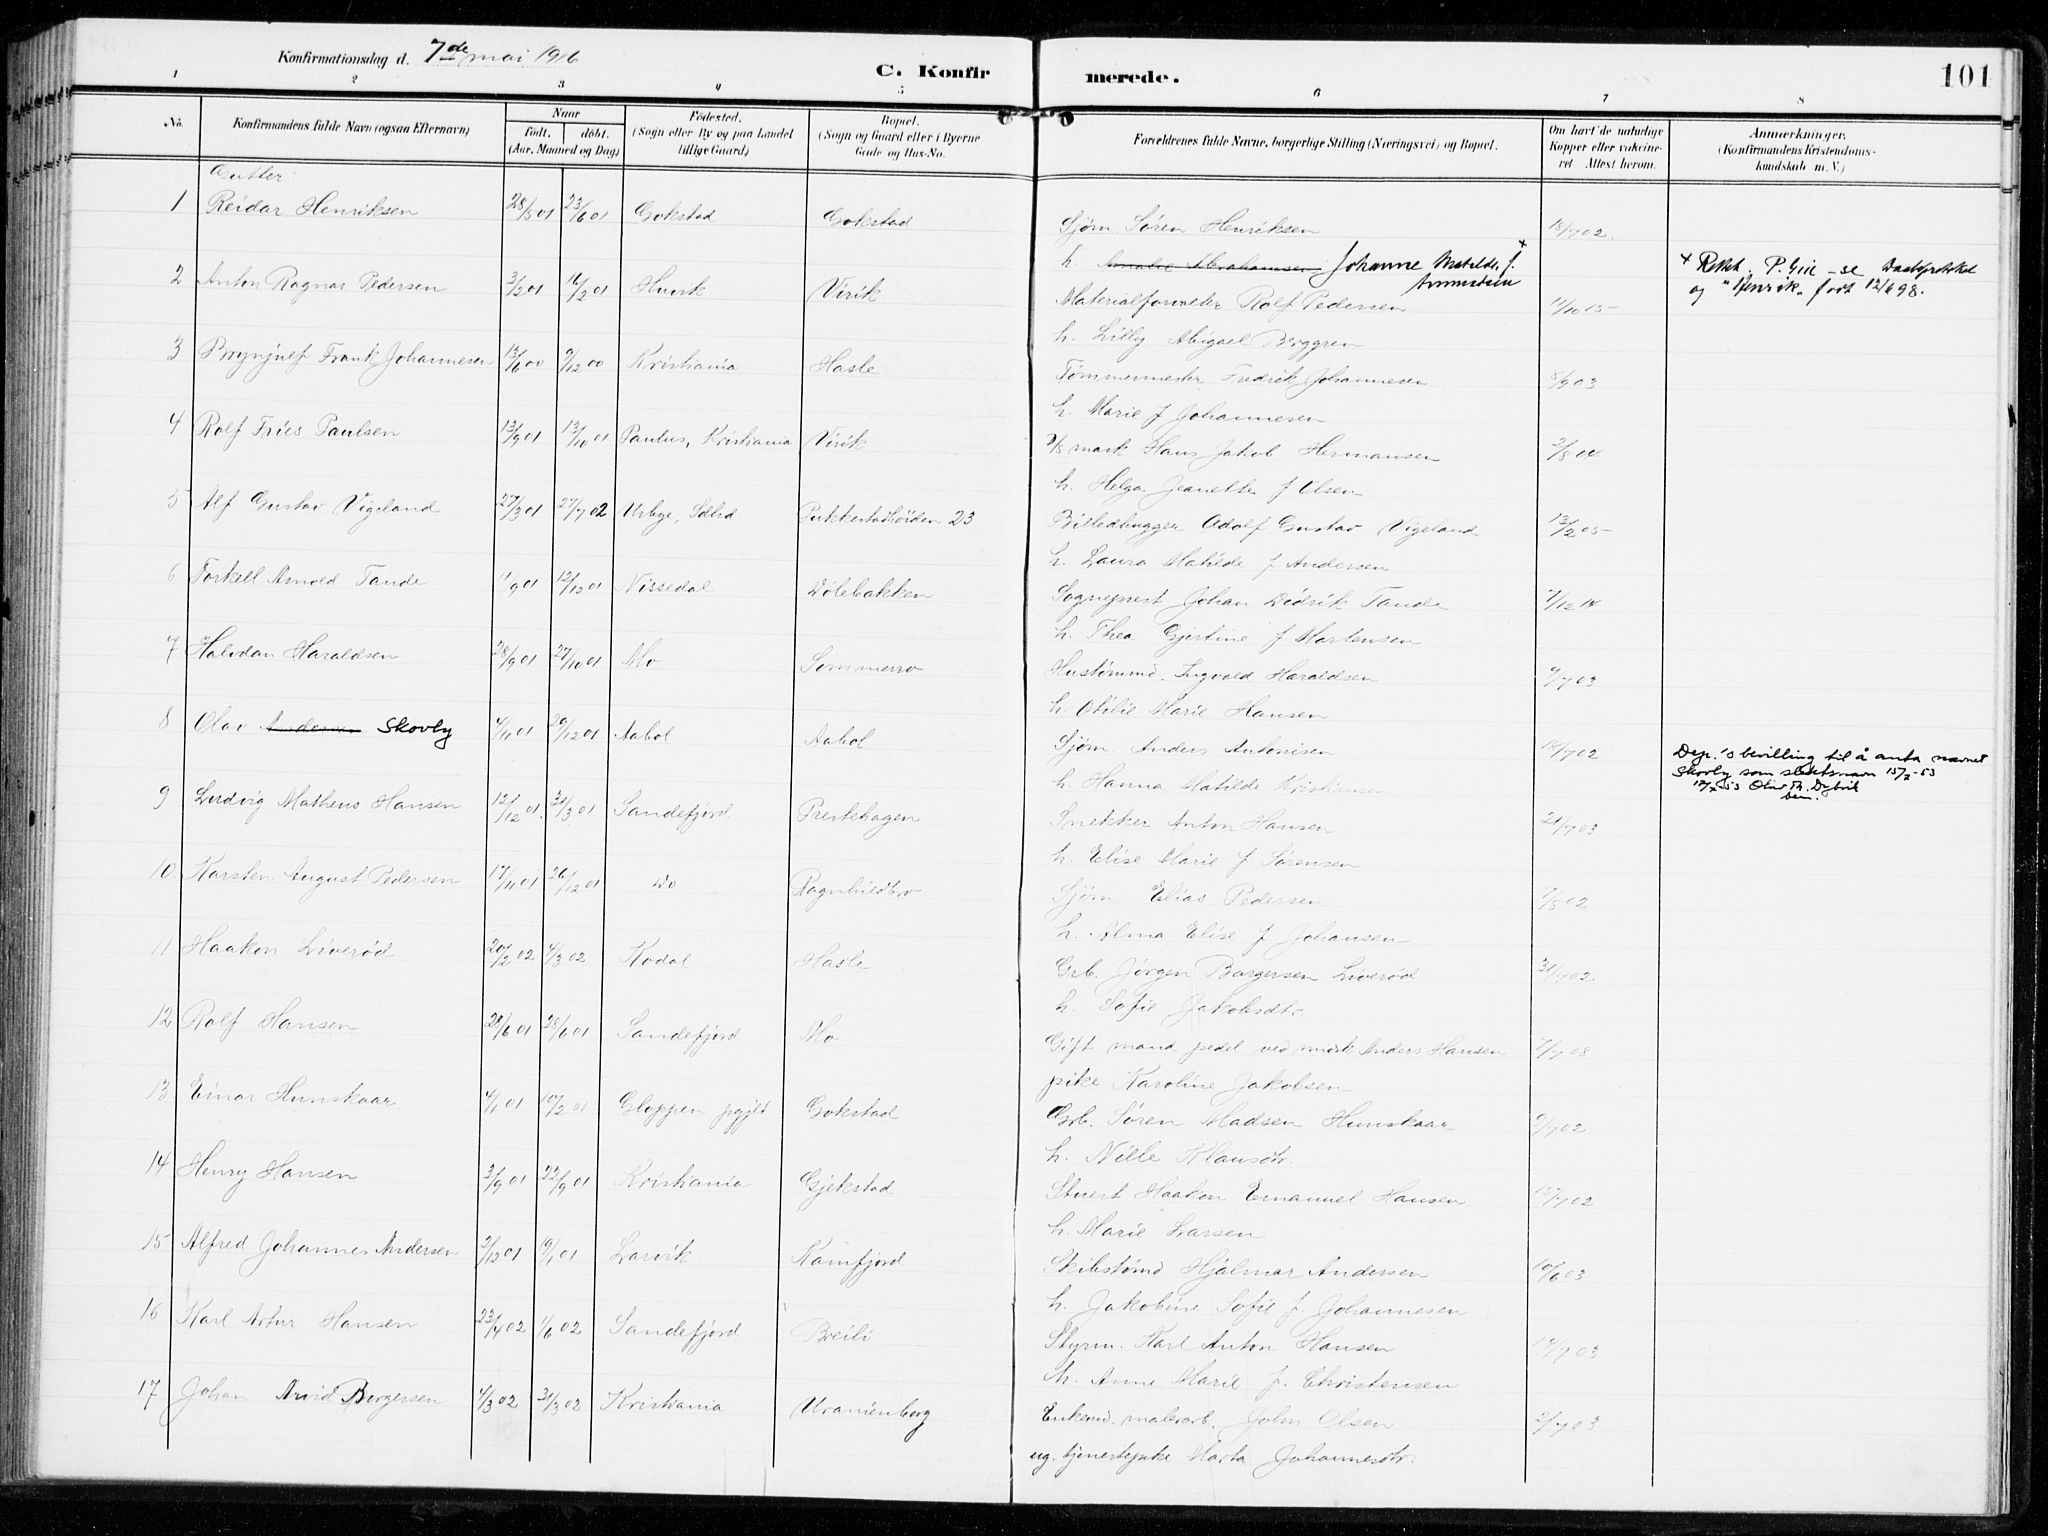 Konfirmationsdag d. 7de mai 1916
C. Konfirmerede.
101
1 2 3 4 5 6 7 8
No. Konfirmandens fulde Navn (ogsaa Efternavn) Naar født. døbt. (Aar, Maaned og Dag) Fødested. (Sogn eller By og paa Landet tillige Gaard) Bopæl. (Sogn og Gaard eller i Byerne Gade og Hus-No. Forældrenes fulde Navne, borgerlige Stilling (Næringsvei) og Bopæl. Om havt de naturlige Kopper eller vakcineret Attest herom. Anmærkninger. (Konfirmandens Kristendomskundskab m. V.)
Gutter:
1 Reidar Henriksen 28/5 01 23/6 01 Gokstad Gokstad Sjøm. Søren Henriksen 18/7 02.
h. Amalie Abrahamsen Johanne Matilde f. x
x Rettet. P. Gie – se Daabsprotokol
og "Henrik" født 12/6 98.
2 Anton Ragnar Pedersen 3/2 01 16/2 01 Hunsk Virik Materialforvalter Rolf Pedersen 11/10 15
h. Lilly Abigael Berggren
3 Brynjulf Frank Johannesen 13/6 00 9/12 00 Kristiania Hasle Tømmermester Fredrik Johannesen 8/9 03
h. Marie f Johannesen
4 Rolf Fries Paulsen 13/9 01 13/10 01 Paulus, Kristiania Virik mask Hans Jakob Hermansen 2/8 14
h. Helga Jeanette f Olsen
5 Alf Gustav Vigeland 27/3 01 27/7 02 Urbye, Pukkestadhøiden 23 Billedhugger Adolf Gustav Vigeland 13/2 05
h. Laura Matilde f Andersen
6 Torkell Arnold Tande 11/9 01 12/10 01 Nissedal Dølebakken Sogneprest Johan Didrik Tande 7/12 14
h. Thea Gjertine f Martensen
7 Halvdan Haraldsen 28/9 01 27/10 01 Mo Sommerro Hustømmd. Ingvald Haraldsen 9/7 03
h. Otilie Marie Hansen
8 Olav Andersen Skovly 4/11 01 29/12 01 Aabol Aabol Sjøm Anders Antonisen 18/7 02
Dep.'s bevilling til å anta navnet
Skovly som slektsnavn 15/7-53
h. Hanna Matilde Kristiansen
9 Ludvig Matheus Hansen 12/12 01. 31/3 01 Sandefjord Prestehagen Snekker Anton Hansen 21/7 03
h. Elise Marie f Sørensen
10 Karsten August Pedersen 17/11 01 26/12 01 Do Ragnhildbro Sjøm Elias Pedersen 7/8 02
h. Alma Elise f Johansen
11 Haakon Liverød 20/2 02 4/3 02 Kodal Hasle Grb. Jørgen Borgersen Liverød 31/7 02
h. Sofie Jakobsdtr
12 Rolf Hansen 28/6 01 28/6 01 Sandefjord Mo Gift mand pedel ved midsk Anders Hansen 7/7 08
pike Karoline Jakobsen
13 Einar Hunskaar 4/1 01 10/2 01 Gloppen pgjld Gokstad Grb. Søren Madsen Hunskaar 9/7 02
h. Nille Klausdtr.
14 Henry Hansen 3/9 01 22/9 01 Kristiania Gjekstad Stuert Haakon Emanuel Hansen 15/7 02
h. Marie Larsen
15 Alfred Johannes Andersen 2/12 01 19/1 01 Larvik Kamfjord Skibstømd Hjalmar Andersen 10/6 03
h. Jakobine Sofie f. Johannesen
16 Karl Artur Hansen 23/4 02 1/6 02 Sandefjord Breili Styrm. Karl Anton Hansen 14/7 03
h. Anne Marie f. Christensen
17 Johan Arvid Borgersen 4/3 02 31/3 02 Kristiania Uranienborg Enkemd. malerarb. John Olsen 2/7 03
ug. tjenestepike Marta Johannesdtr.